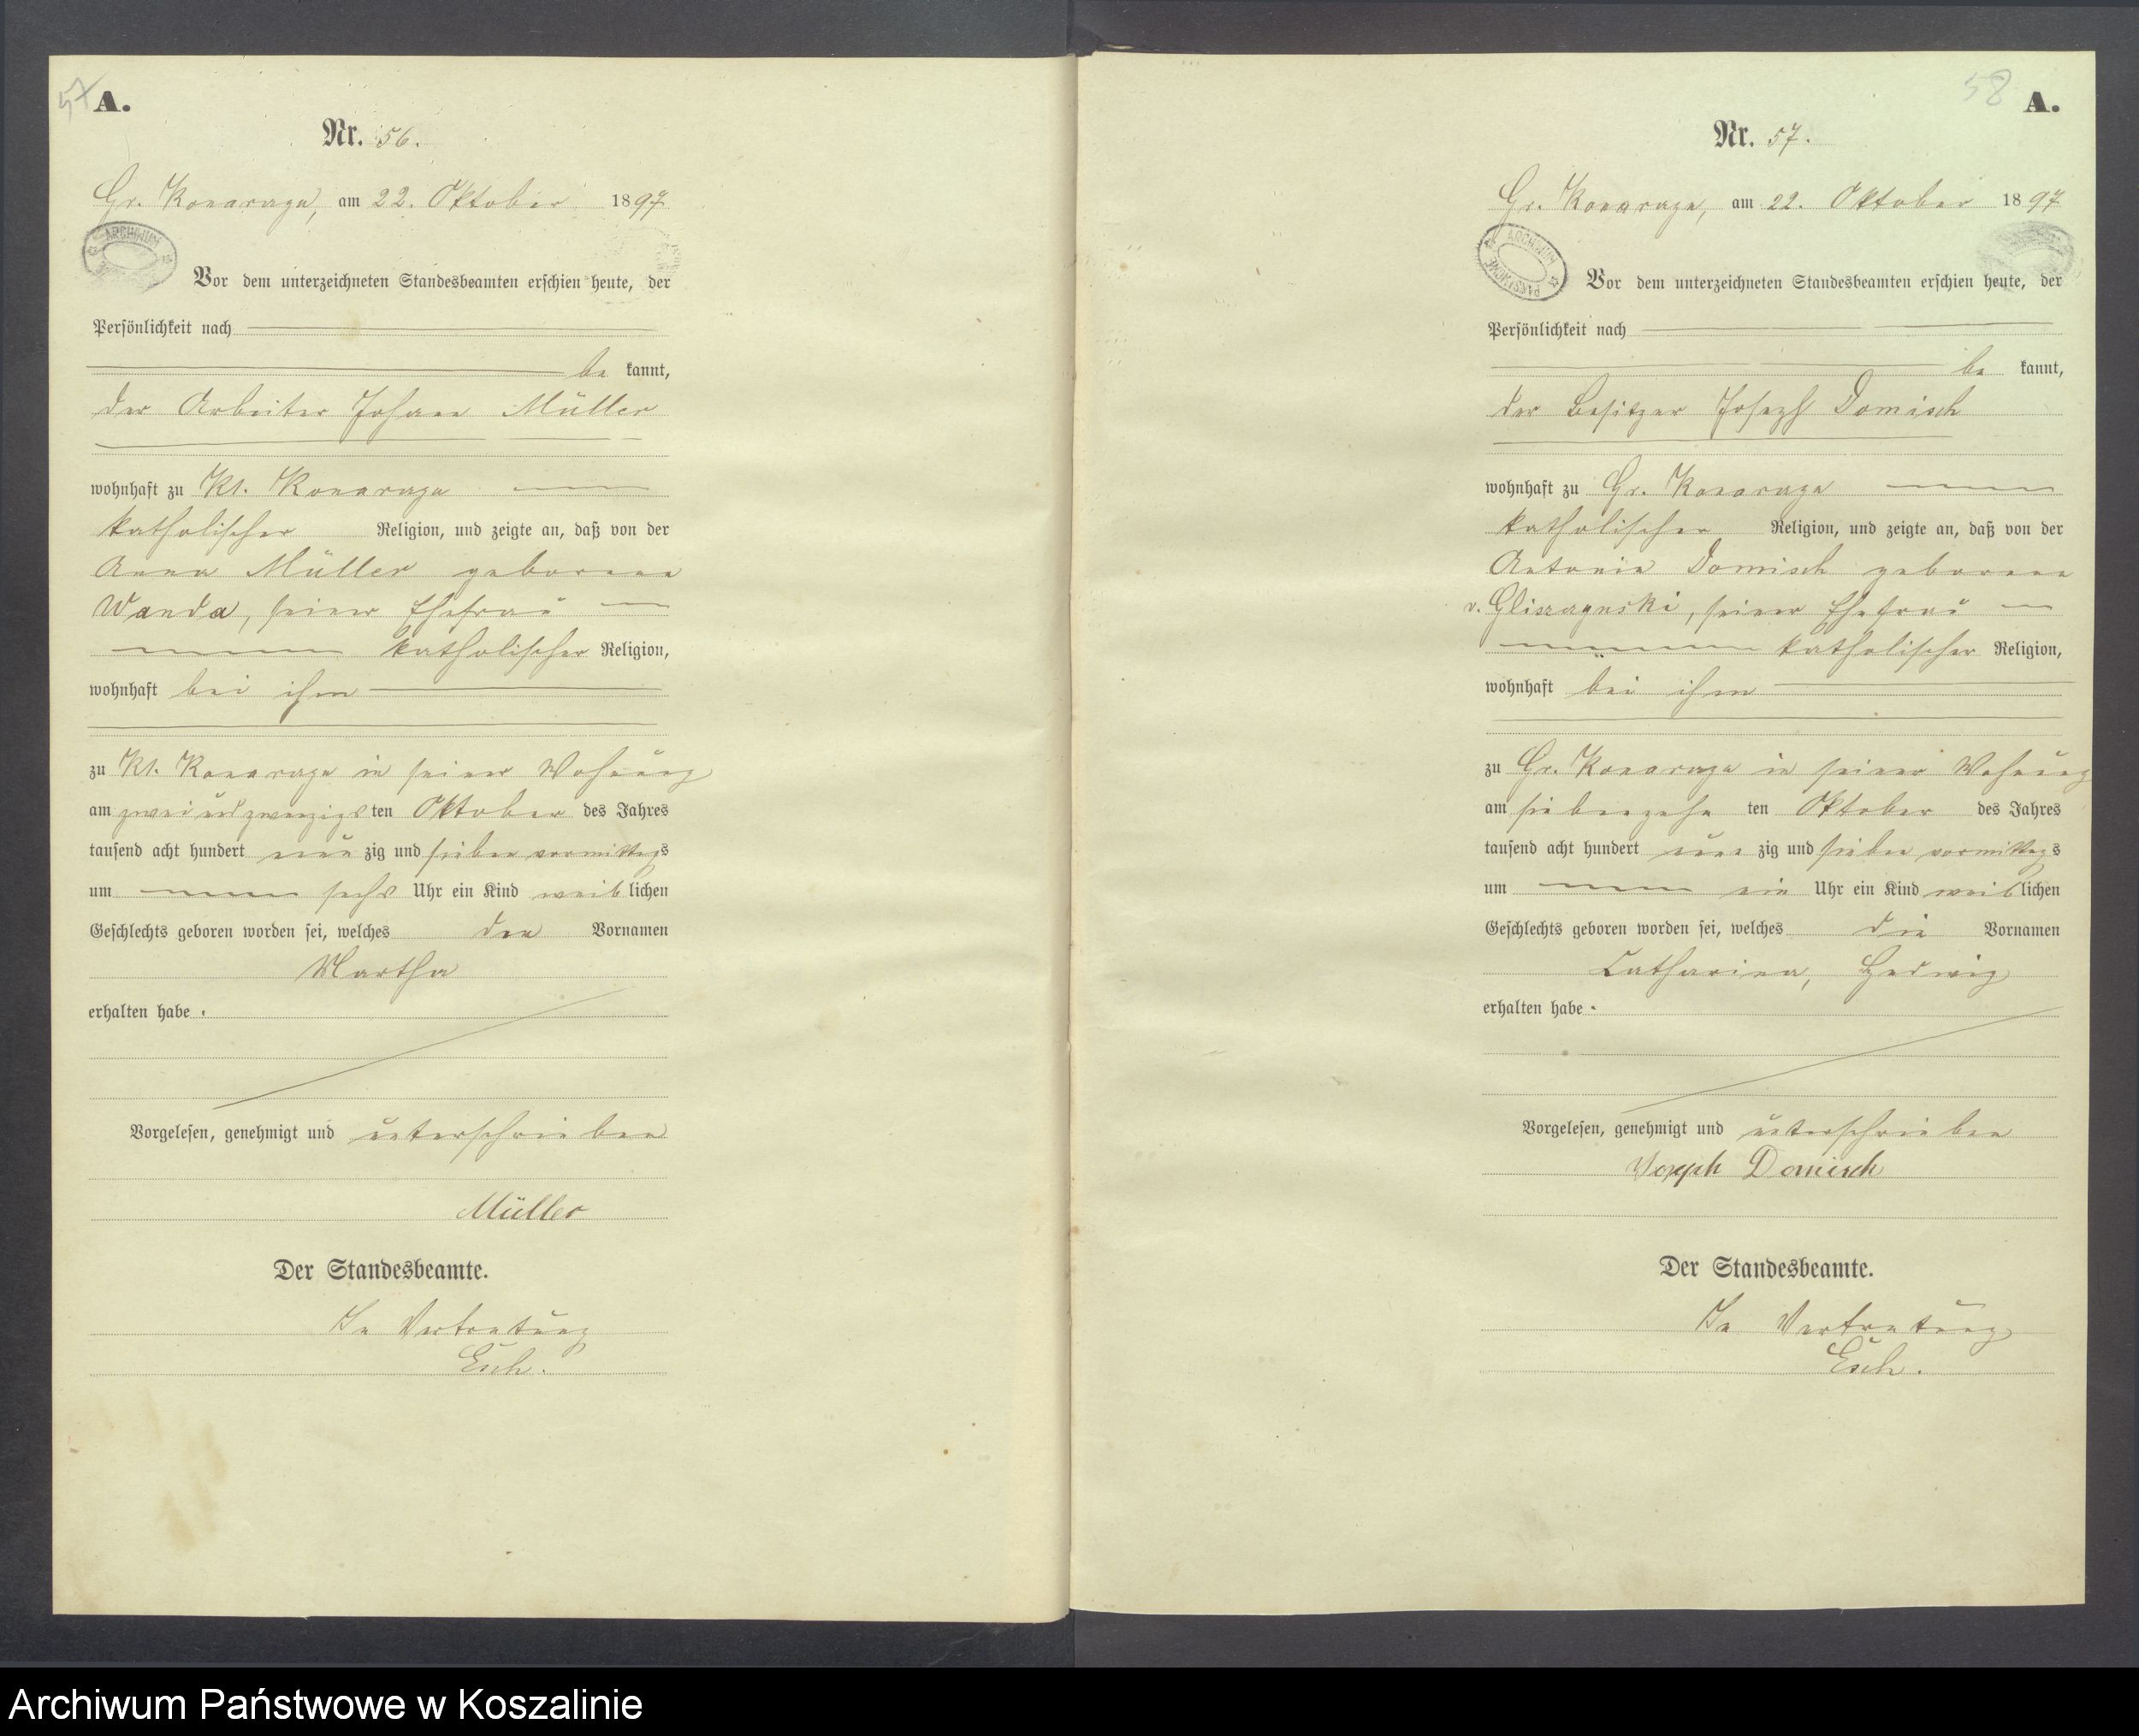 57
A.
Nr. 56.
Gr. Konarzyn, am 22. Oktober 1897
ARCHIWUM
Vor dem unterzeichneten Standesbeamten erschien heute, der
Persönlichkeit nach
be kannt,
der Arbeiter Johann Müller
wohnhaft zu Kl. Konarzyn
katholischer Religion, und zeigte an, daß von der
Anna Müller geborene
Wanda, seiner Ehefrau
katholischer Religion,
wohnhaft bei ihm
zu Kl. Konarzyn in seiner Wohnung
am zwei und zwanzigsten Oktober des Jahres
tausend acht hundert neun zig und sieben vormittags
um sechs Uhr ein Kind weiblichen
Geschlechts geboren worden sei, welches den Vornamen
Martha
erhalten habe.
Vorgelesen, genehmigt und unterschrieben
Müller
Der Standesbeamte.
In Vertretung
Esch.
58
A.
Nr. 57.
Gr. Konarzyn, am 22. Oktober 1897
ARCHIWUM PAŃSTWOWE
Vor dem unterzeichneten Standesbeamten erschien heute, der
Persönlichkeit nach
be kannt,
der Besitzer Joseph Domisch
wohnhaft zu Gr. Konarzyn
katholischer Religion, und zeigte an, daß von der
Antonie Domisch geborene
v. Gliszczynski, seiner Ehefrau
katholischer Religion,
wohnhaft bei ihm
zu Gr. Konarzyn in seiner Wohnung
am siebenzehn ten Oktober des Jahres
tausend acht hundert neun zig und sieben vormittags
um ein Uhr ein Kind weiblichen
Geschlechts geboren worden sei, welches die Vornamen
Catharina, Hedwig
erhalten habe.
Vorgelesen, genehmigt und unterschrieben
Joseph Domisch
Der Standesbeamte.
In Vertretung
Esch.
Archiwum Państwowe w Koszalinie